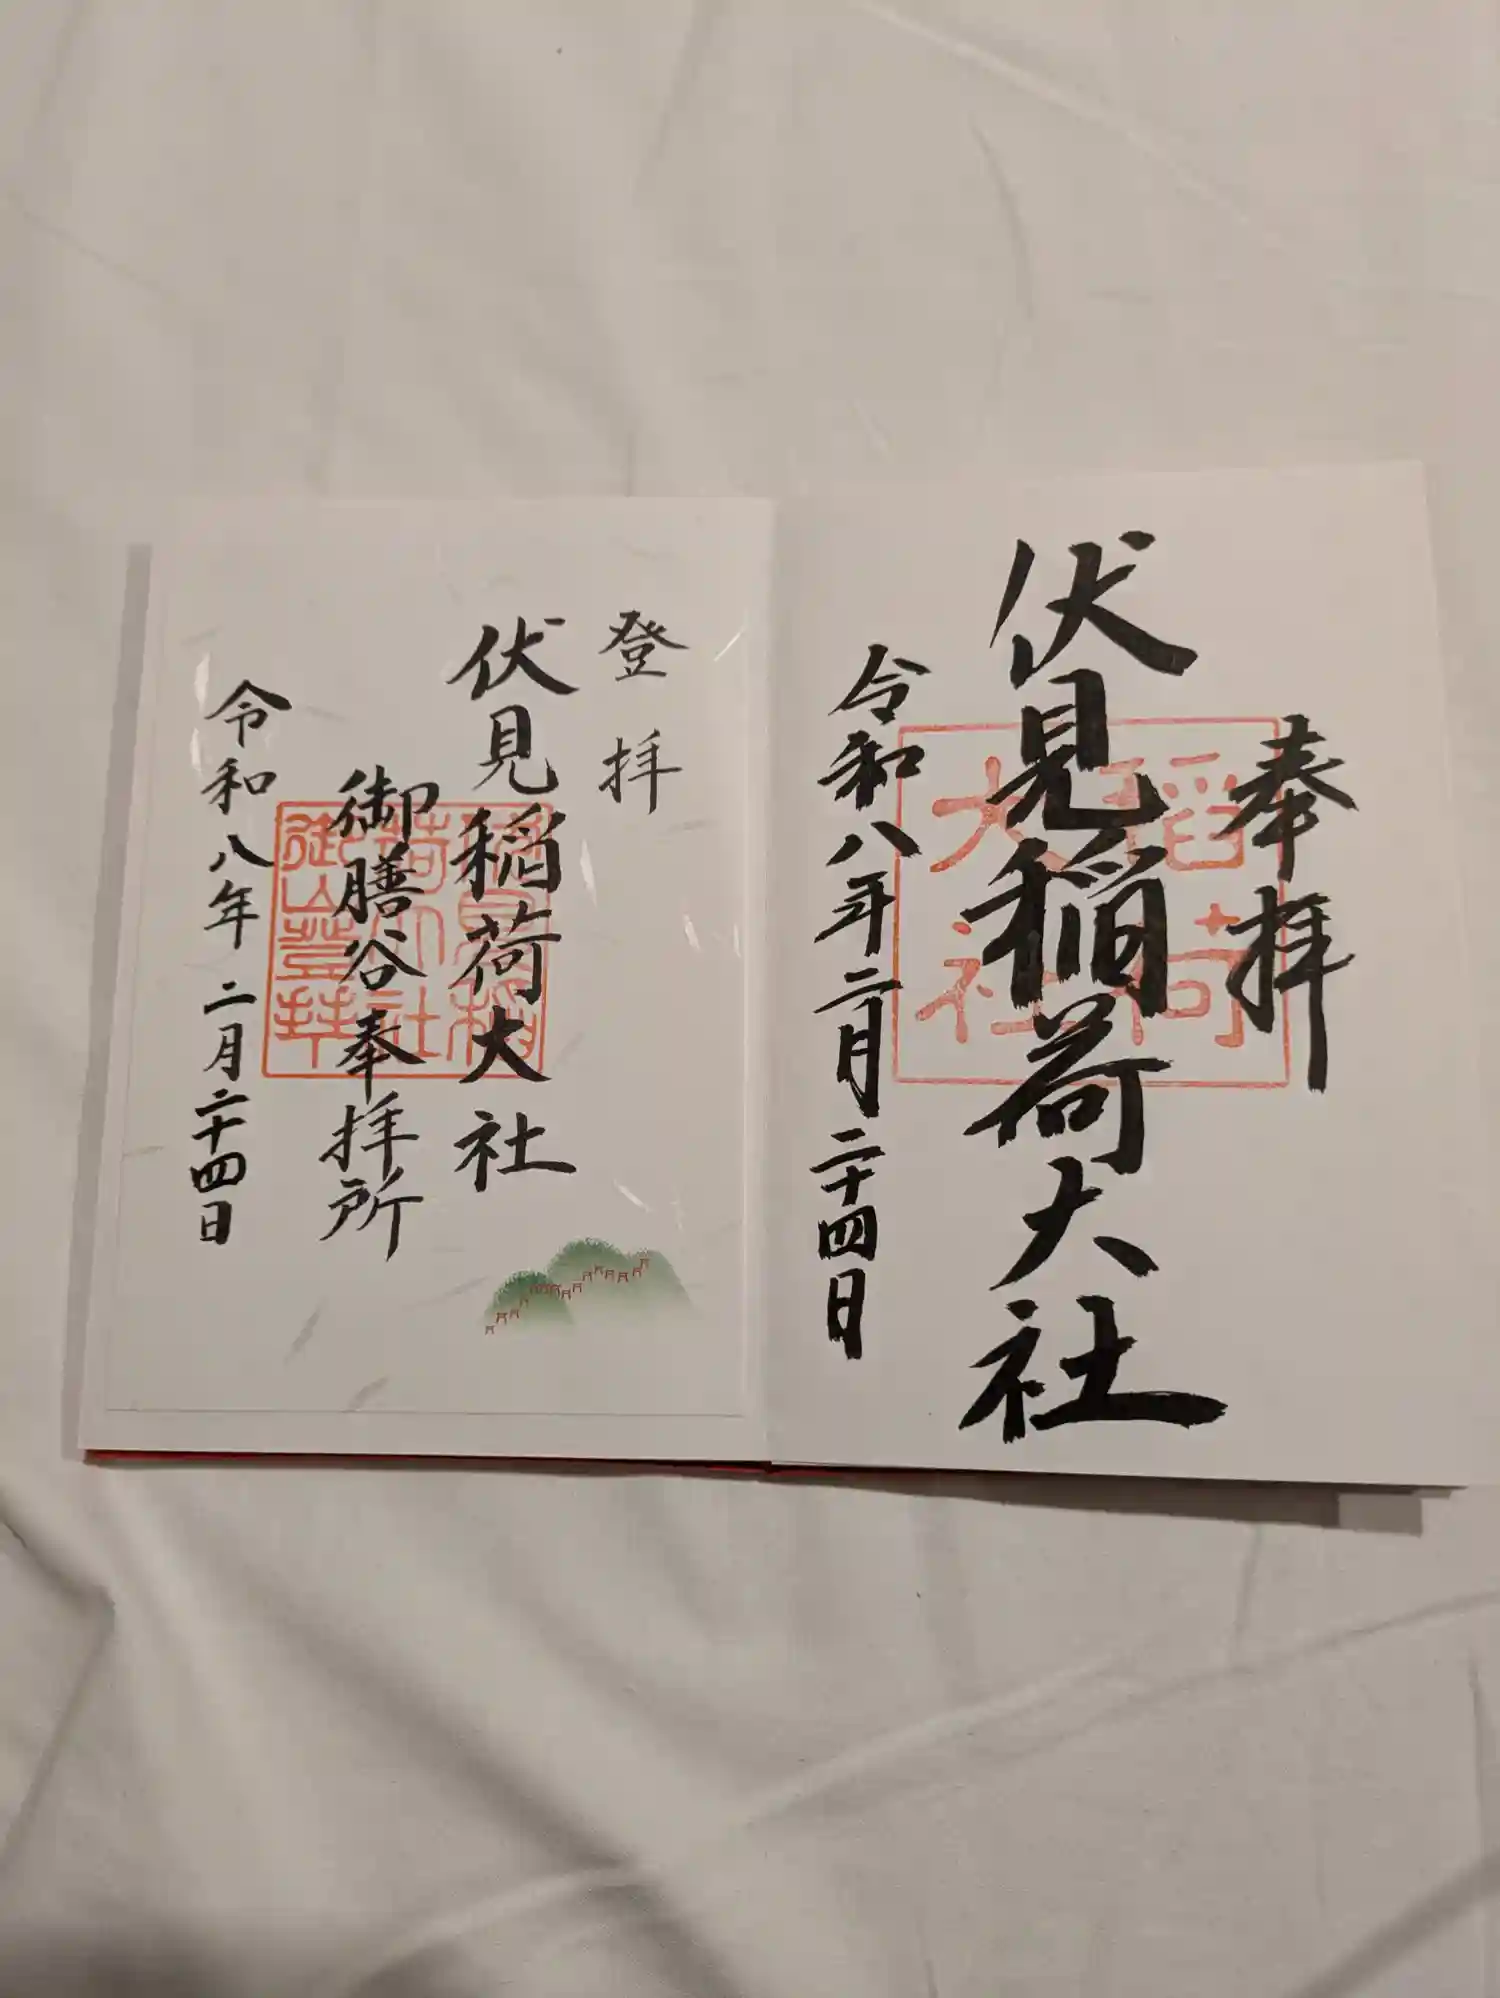 奉拝
伏見稲荷大社
令和八年二月二十四日
稲荷
大社
登拝
伏見稲荷大社
御膳谷奉拝所
令和八年二月二十四日
伏見稲
荷大社
御山登拝